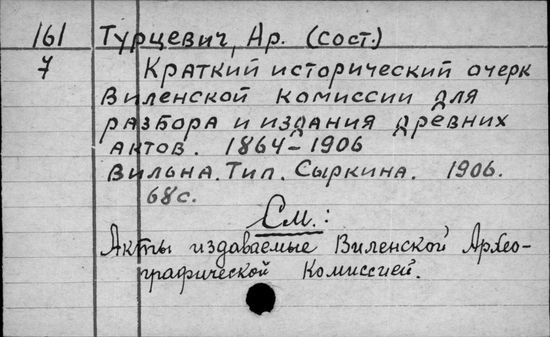 161 Турцевич, Ар. (сост.)
7 Краткий исторический очерк
Виленской комиссии для
разбора и издания древних
актов. 1864-1906
Вильна. Тип. Сыркина. 1906.
68с.
См.:
Акты издаваемые Виленской Архео-
графической Комиссией.